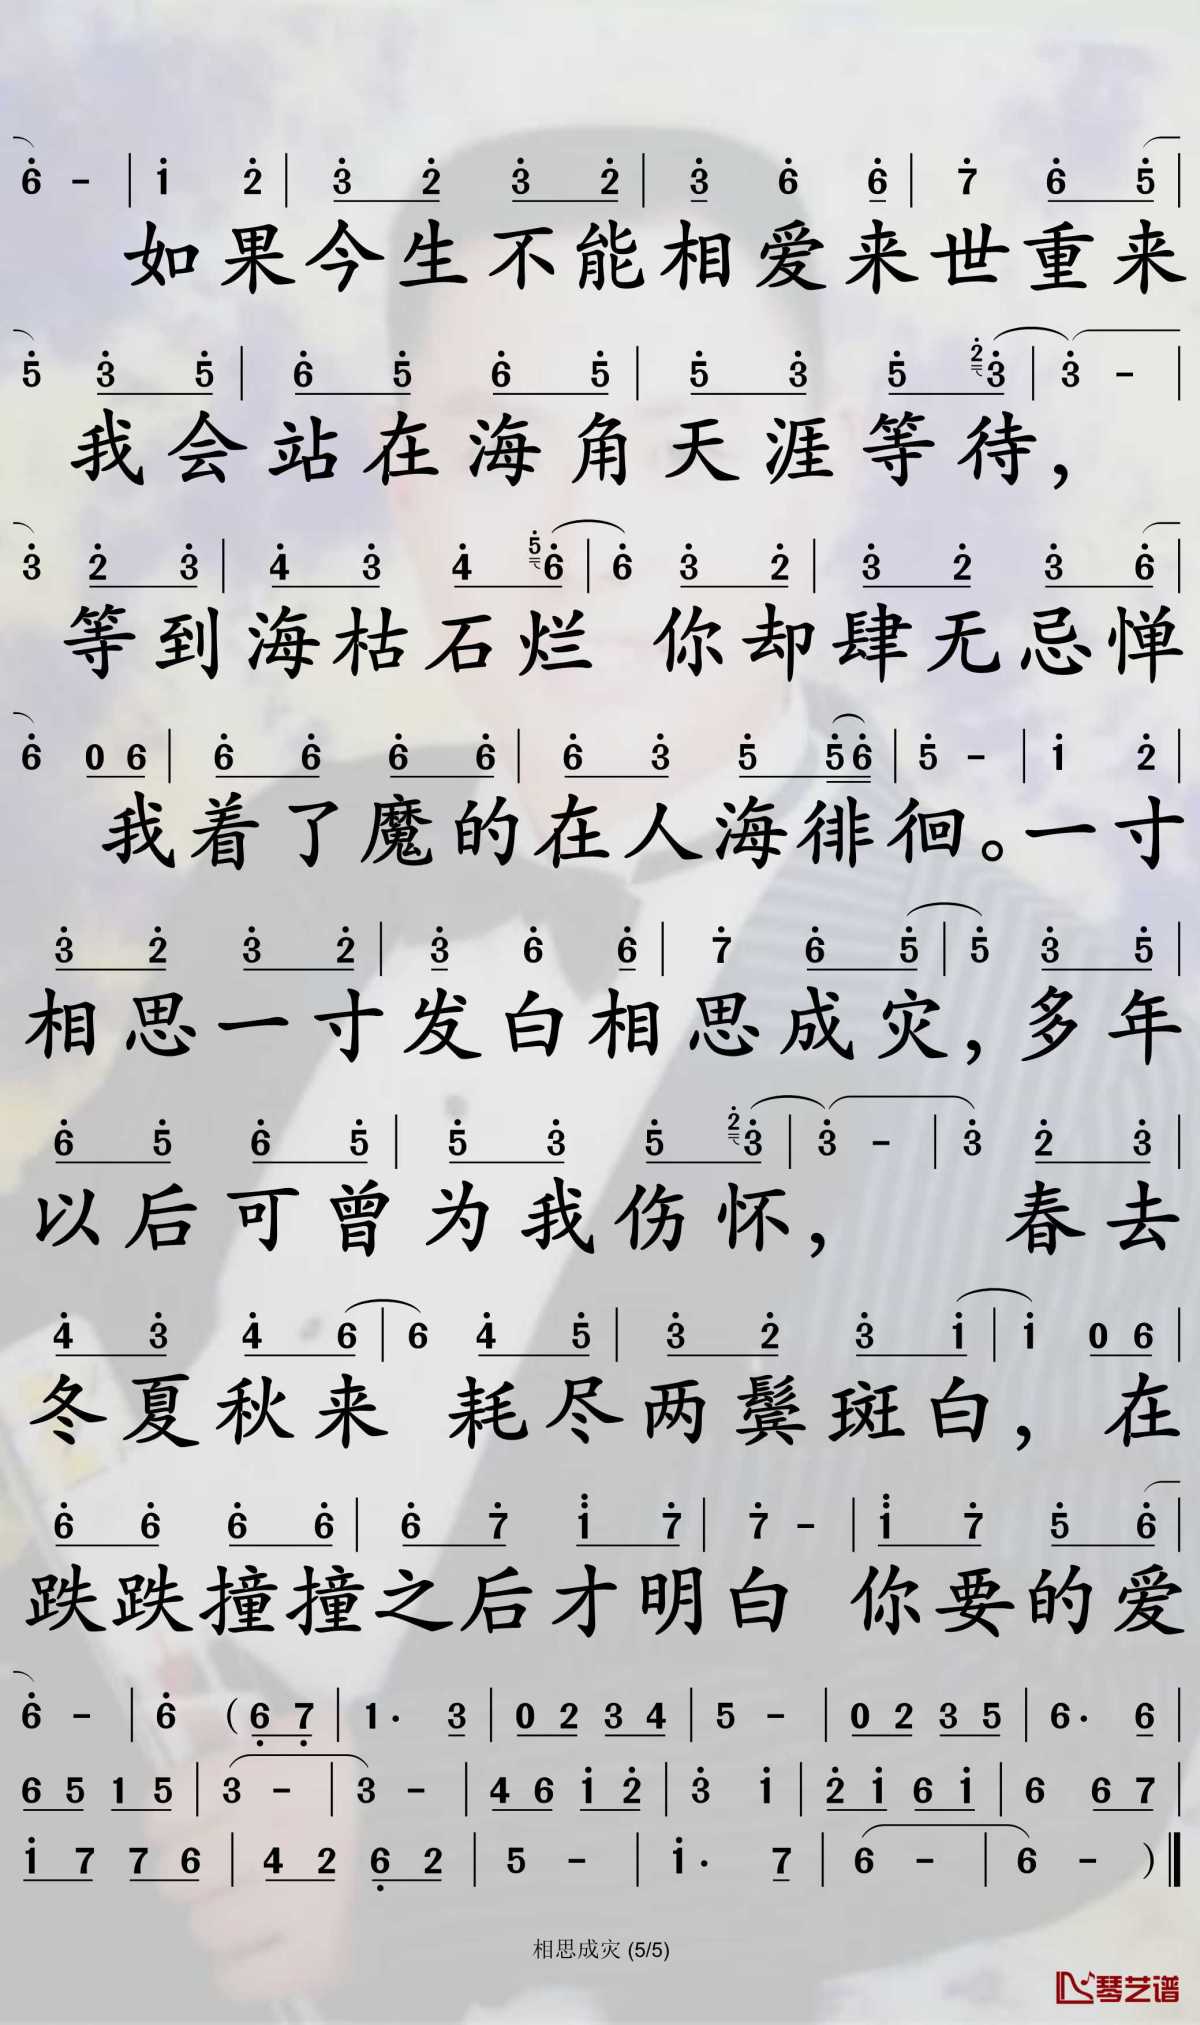 6 - | 1 2 | 3 2 3 2 | 3 6 6 | 7 6 5 |
如果今生不能相爱来世重来
5 3 5 | 6 5 6 5 | 5 3 5 2 3 | 3 - |
我会站在海角天涯等待，
3 2 3 | 4 3 4 5 6 | 6 3 2 | 3 2 3 6 |
等到海枯石烂 你却肆无忌惮
6 0 6 | 6 6 6 6 | 6 3 5 5 6 | 5 - | 1 2 |
我着了魔的在人海徘徊。一寸
3 2 3 2 | 3 6 6 | 7 6 5 | 5 3 5 |
相思一寸发白相思成灾，多年
6 5 6 5 | 5 3 5 2 3 | 3 - | 3 2 3 |
以后可曾为我伤怀， 春去
4 3 4 6 | 6 4 5 | 3 2 3 1 | 1 0 6 |
冬夏秋来 耗尽两鬓斑白，在
6 6 6 6 | 6 7 1 7 | 7 - | 1 7 5 6 |
跌跌撞撞之后才明白 你要的爱
6 - | 6 (6 7 | 1· 3 | 0 2 3 4 | 5 - | 0 2 3 5 | 6· 6 |
6 5 1 5 | 3 - | 3 - | 4 6 1 2 | 3 1 | 2 1 6 1 | 6 6 7 |
1 7 7 6 | 4 2 6 2 | 5 - | 1· 7 | 6 - | 6 - ) |
相思成灾 (5/5)
琴艺谱